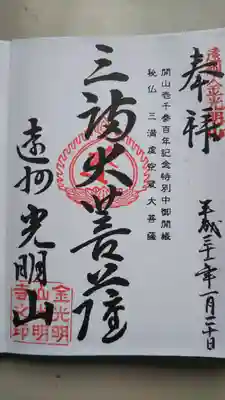 奉拝
平成三十一年一月二十日
開山壱千参百年記念特別中御開帳
秘仏 三満虚空蔵大菩薩
三満大菩薩
遠州光明山
金光明
山光明
寺之印